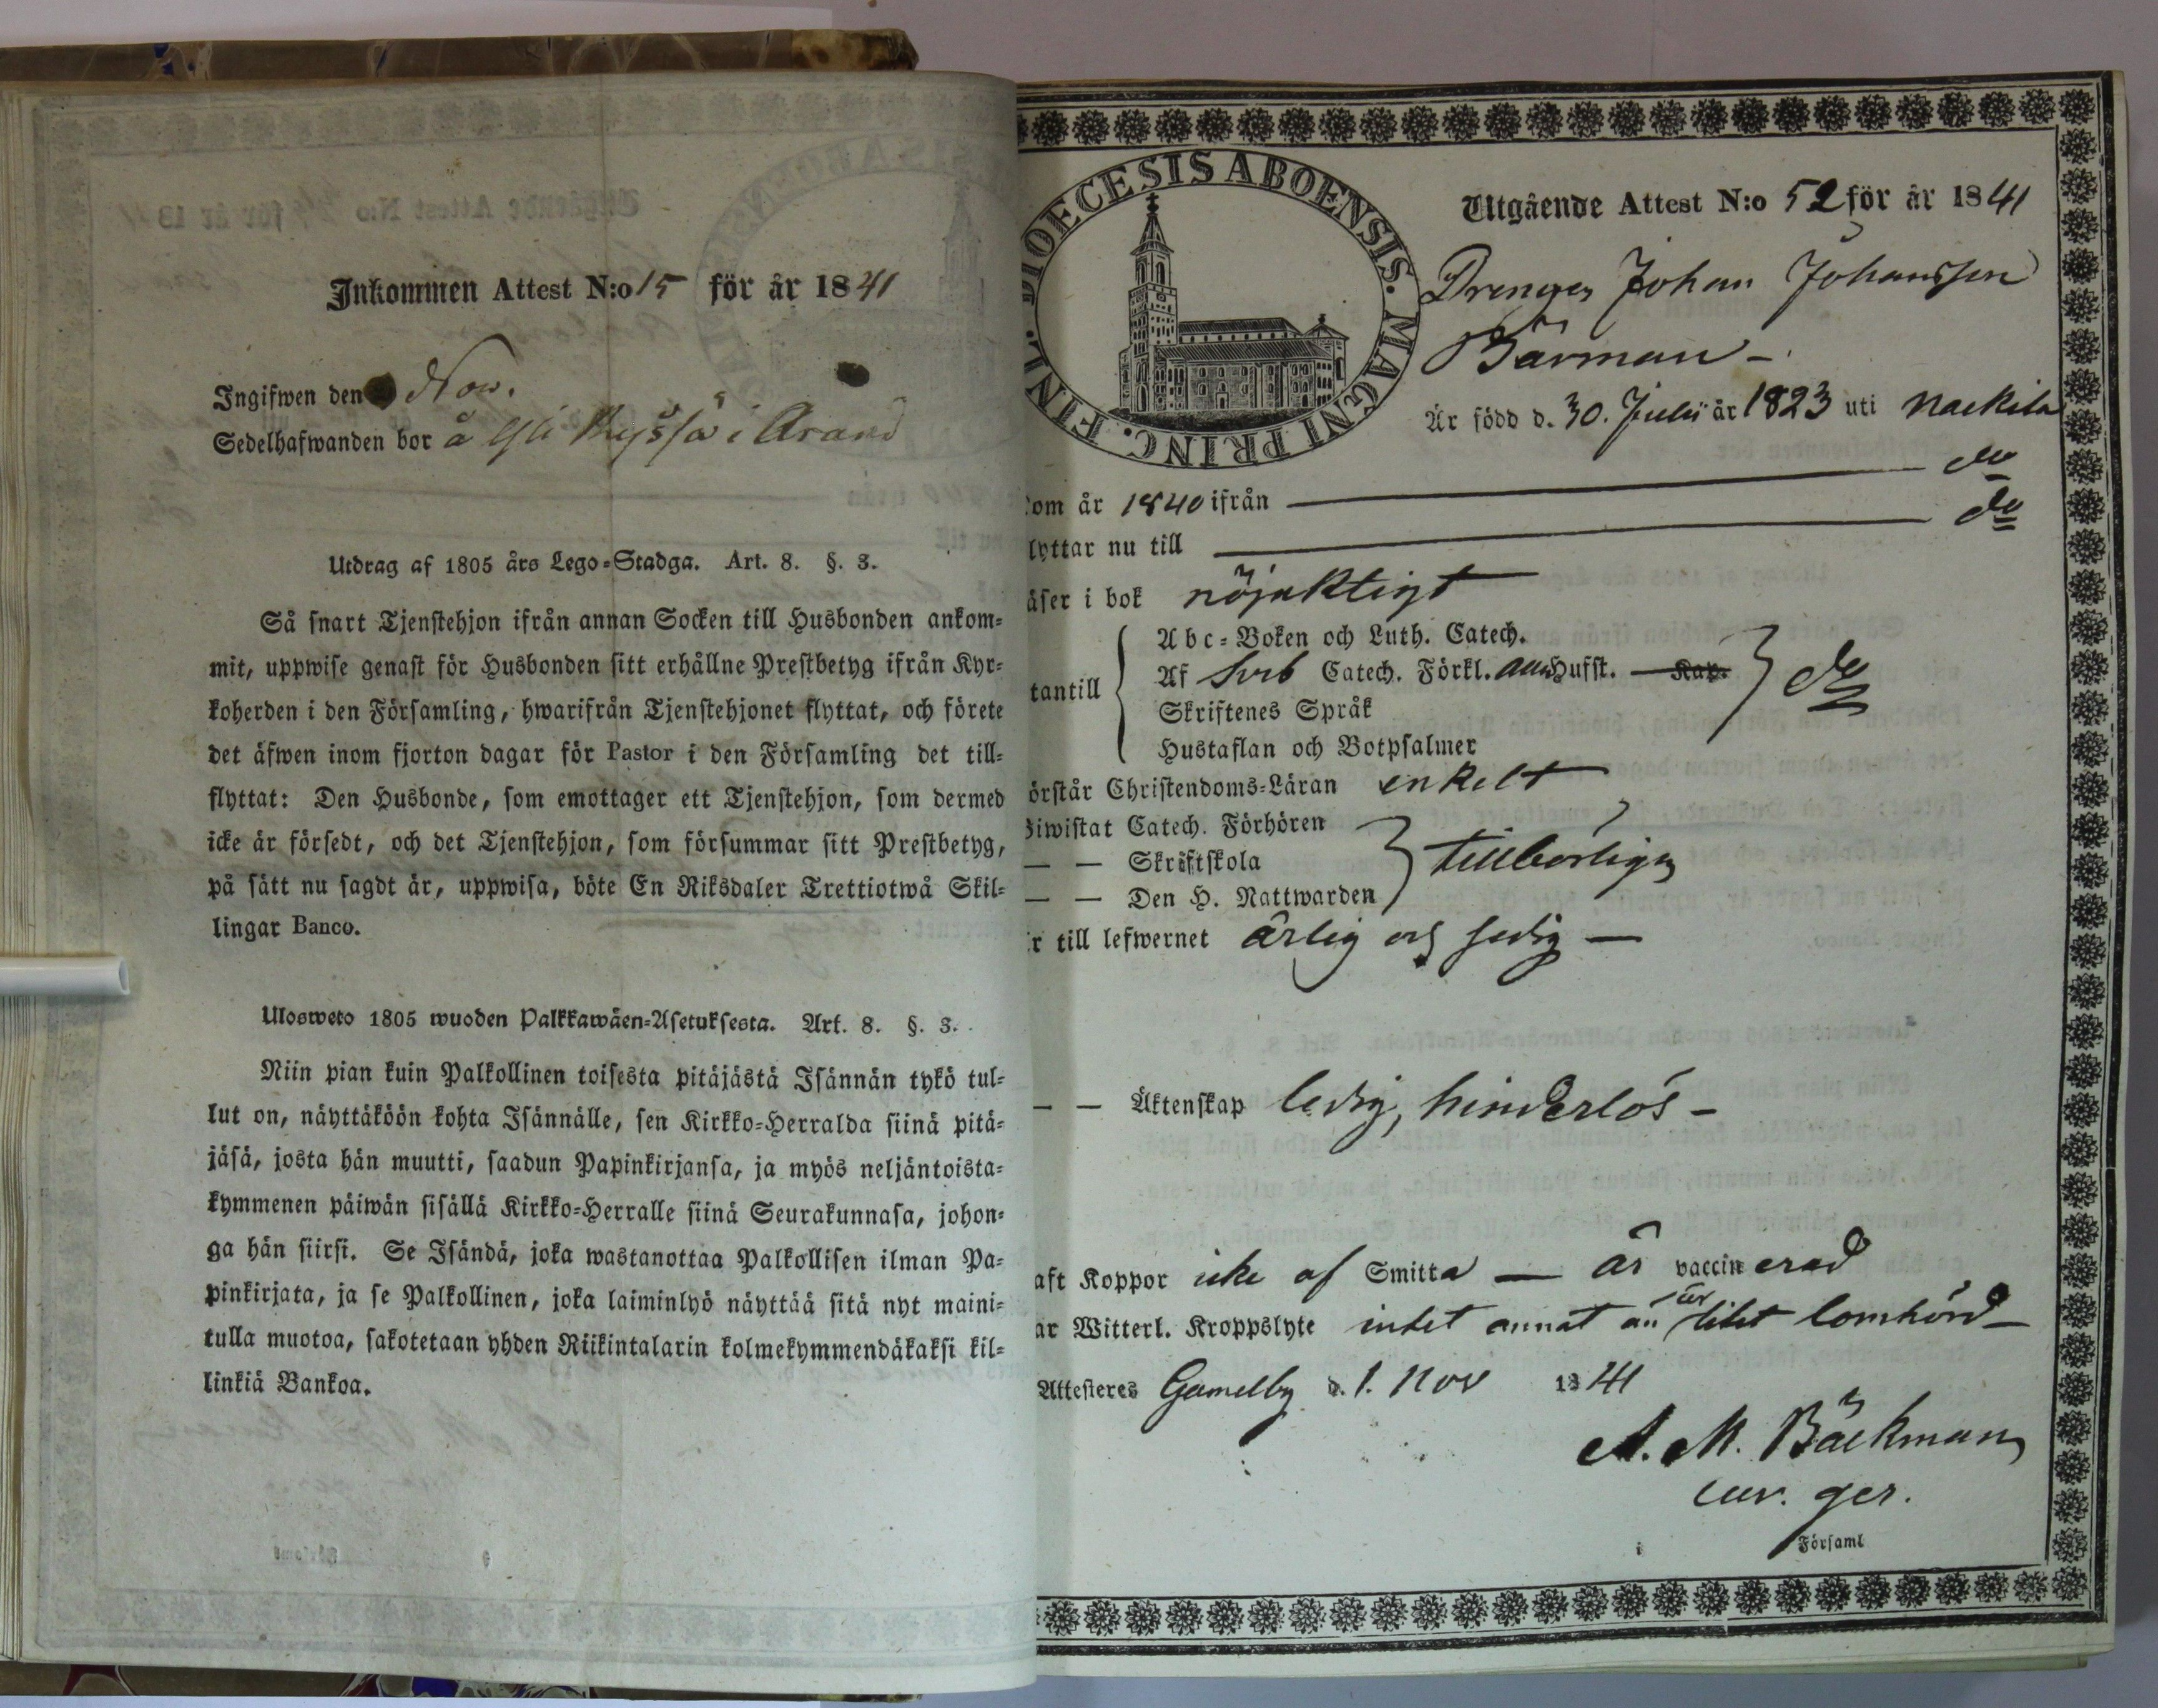 Inkommen Attest N:o 15 för år 1841
Ingifwen den Nov.
Sedelhafwanden bor å i
Utdrag af 1805 års Lego-Stadga. Art. 8. §. 3.
Så snart Tjenstehjon ifrån annan Socken till Husbonden ankom-
mit, uppwise genast för Husbonden sitt erhållne Prestbetyg ifrån Kyr-
koherden i den Församling, hwarifrån Tjenstehjonet flyttat, och förete
det äfwen inom fjorton dagar för Pastor i den Församling det till-
flyttat: Den Husbonde, som emottager ett Tjenstehjon, som dermed
icke är försedt, och det Tjenstehjon, som försummar sitt Prestbetyg,
på sätt nu sagdt är, uppwisa, böte En Riksdaler Trettiotwå Skil-
lingar Banco.
Ulosweto 1805 wuoden Palkkawäen-Asetuksesta. Art. 8. §. 3.
Niin pian kuin Palkollinen toisesta pitäjästä Isännän tykö tul-
lut on, näyttäköön kohta Isännälle, sen Kirkko-Herralda siinä pitä-
jäsä, josta hän muutti, saadun Papinkirjansa, ja myös neljäntoista-
kymmenen päiwän sisällä Kirkko-Herralle siinä Seurakunnasa, johon-
ga hän siirsi. Se Isändä, joka wastanottaa Palkollisen ilman Pa-
pinkirjata, ja se Palkollinen, joka laiminlyö näyttää sitä nyt maini-
tulla muotoa, sakotetaan yhden Riikintalarin kolmekymmendäkaksi kil-
linkiä Bankoa.
DIOECESIS ABOENSIS. MAGNI PRINC. FINL.
Utgående Attest N:o 52 för år 1841
Drengen Johan Johansson
Bärman -
Är född d. 30. Julii år 1823 uti Nackila
om år 1840 ifrån do
lyttar nu till do
äser i bok nöjaktigt
tantill
Abc-Boken och Luth. Catech.
Af Svb Catech. Förkl. Hufst. Kap.
do
Skriftenes Språk
Hustaflan och Botpsalmer
örstår Christendoms-Läran enkelt
Biwistat Catech. Förhören
— — Skriftskola tillbörligen
— — Den H. Nattwarden
r till lefwernet ärlig och sedig —
— — Äktenskap ledig, hinderlös -
aft Koppor icke af Smitta — är vaccinerad
ar Witterl. Kroppslyte intet annat än är litet lomhörd -
Attesteres Gamelby d. 1. Nov 1841
A. M. Bäckman
cur. ger.
Församl